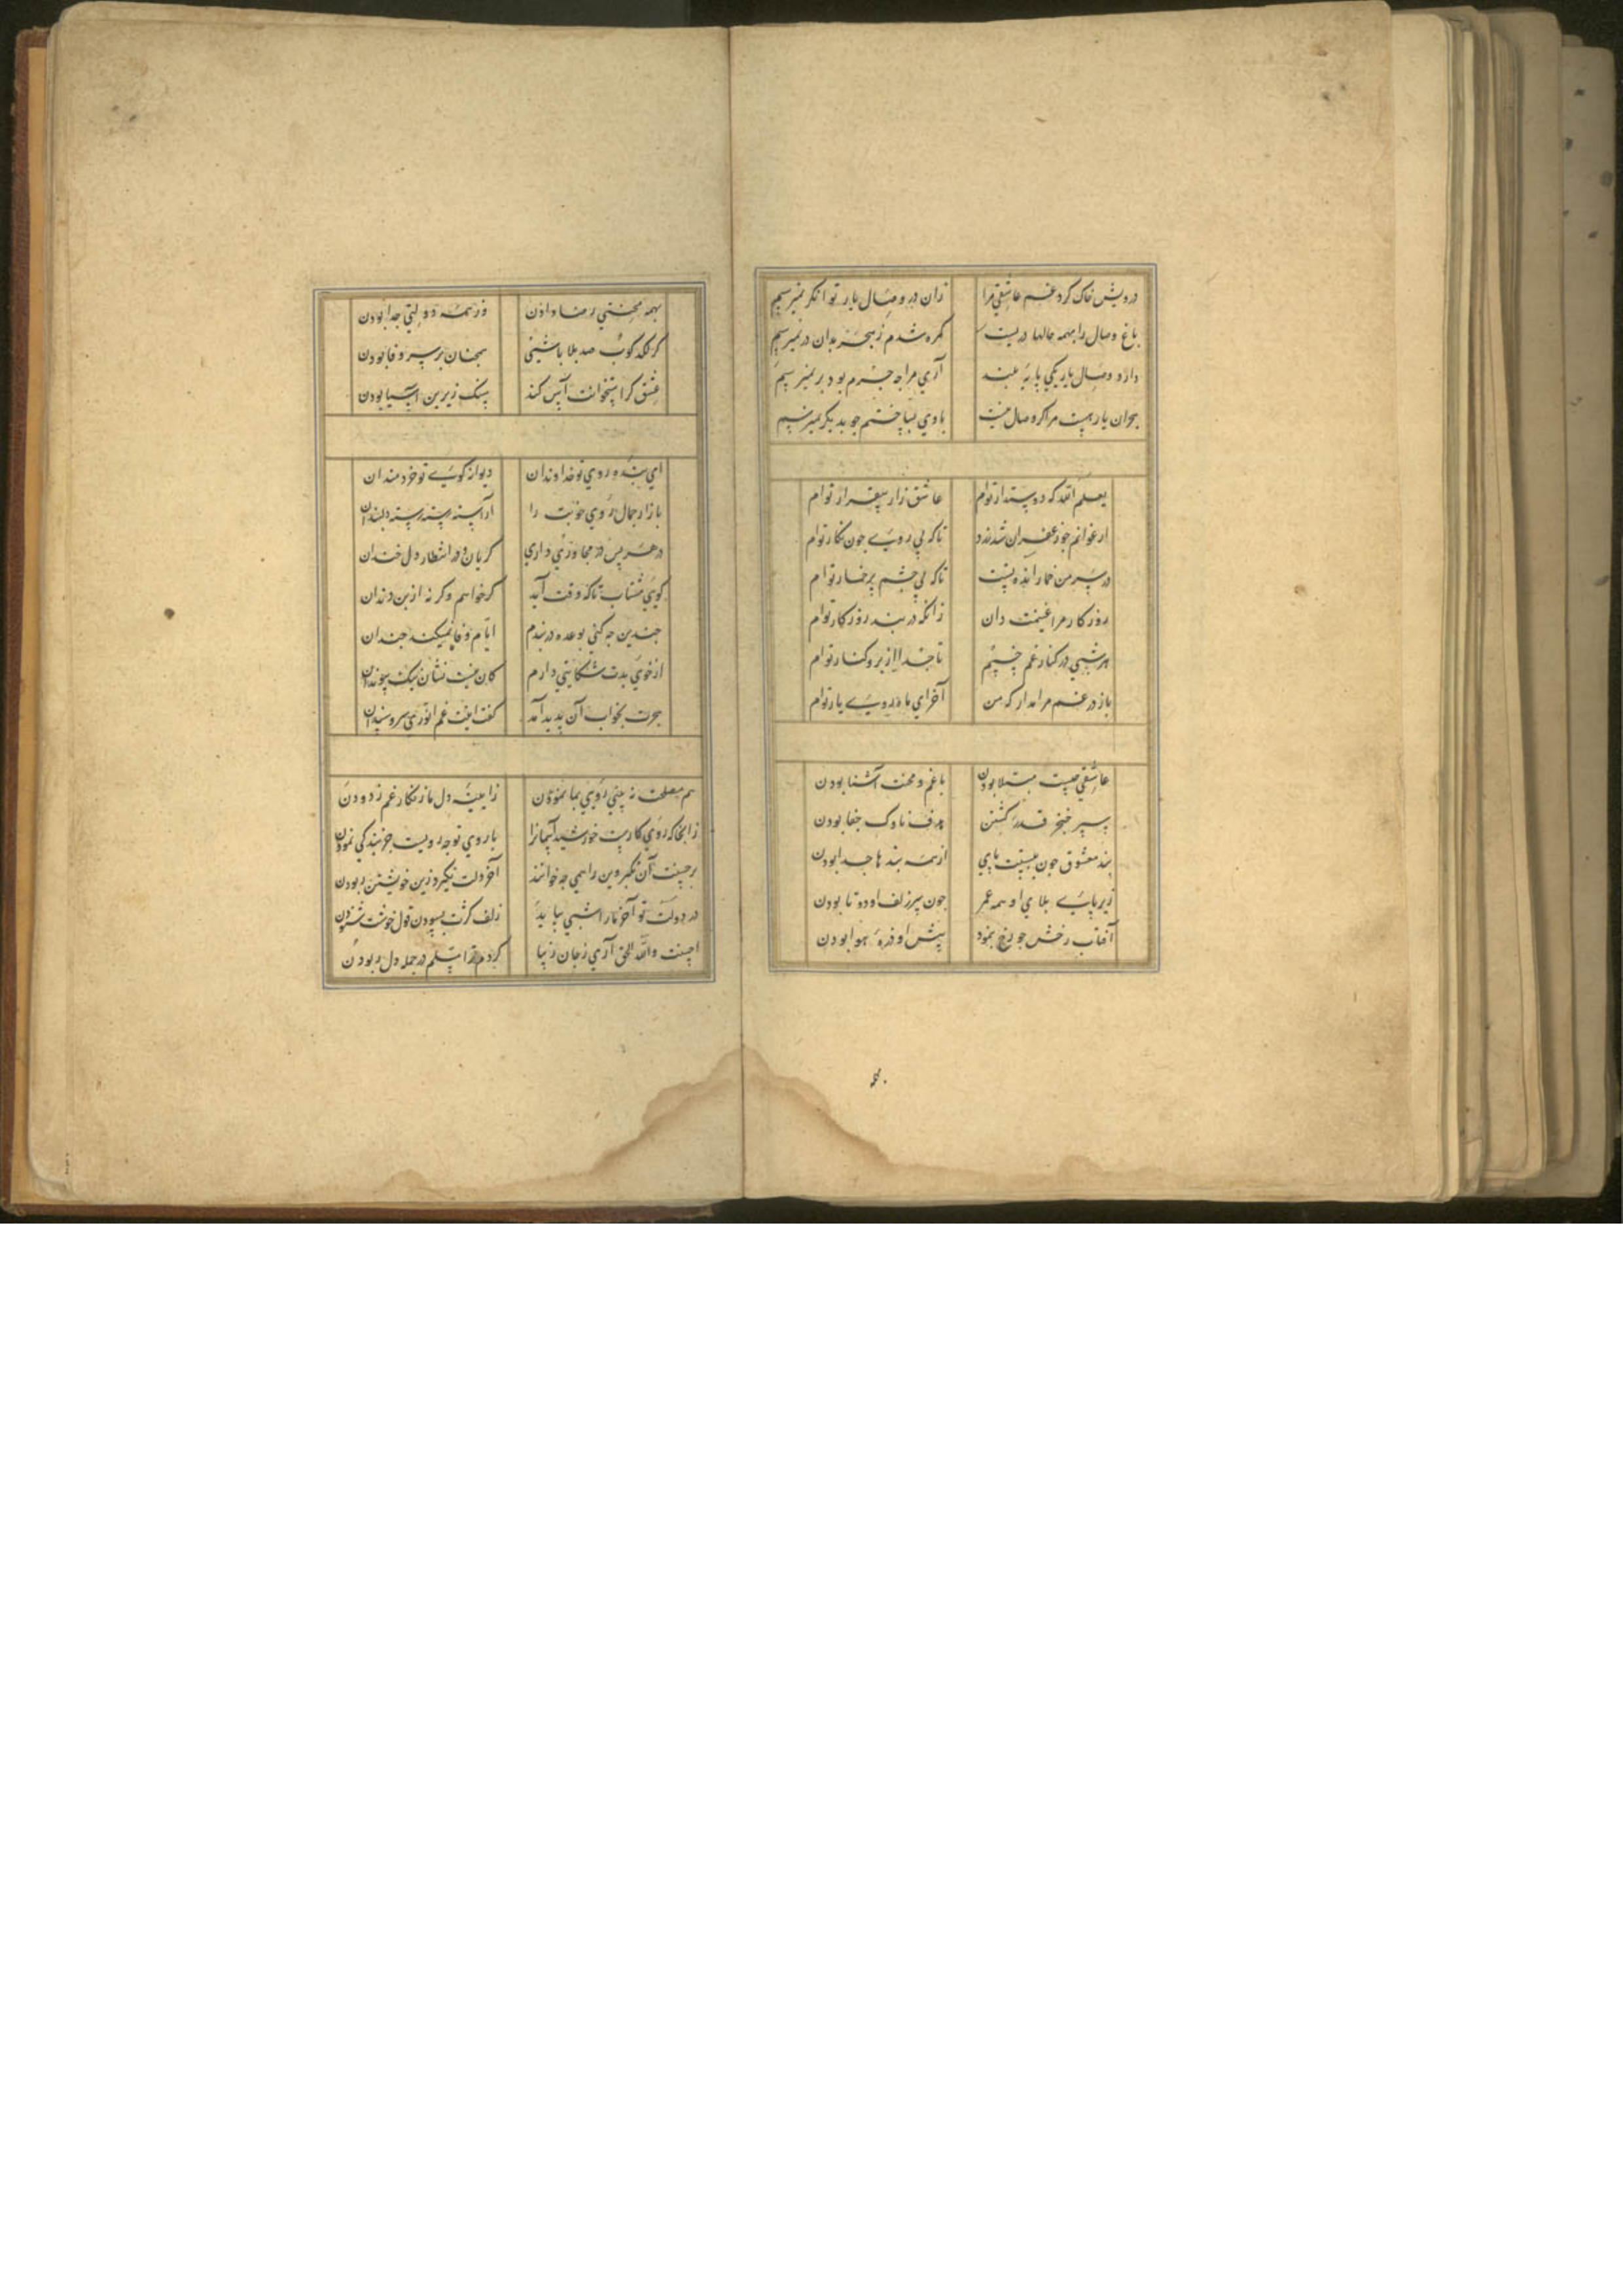 درویش خاک کرد غم عاشقی مرا زان در وصال یار توانکر نمیرسیم
باغ وصال را بهمه حالها دریست کمره شدم ز هجر بدان در نمیرسیم
دارد وصال یار یکی پایه بلند آری مرا چه جرم بود بر نمیرسیم
هجران یار هست مرا کر وصال نیست با وی بساختم جو بدیکر نمیرسیم
یعلم الله که دوستدار توام عاشق زار بیقرار توام
ارغوانم جو زعفران شد زرد تا که بی روی جون نکار توام
در سر من خمار انده تست تا که بی جشم پرخمار توام
روزکار مرا غنیمت دان زانکه در بند روزکار توام
هر شبی در کنار غم خسپم تا جدا از بر و کنار توام
باز در غم مرا مدار که من آخر ای ماه روی یار توام
عاشقی جیست مبتلا بودن با غم و محنت آشنا بودن
سپر خنجر قدر کشتن هدف ناوک جفا بودن
بند معشوق جون ببستت پای از همه بندها جدا بودن
زیر پای بلای او همه عمر جون سر زلف او دوتا بودن
آفتاب رخش جو رخ بنمود پیش او ذره هوا بودن
بهمه محنتی رضا دادن وز همه دولتی جدا بودن
کر لکد کوب صد بلا باشی همجنان بر سر وفا بودن
عشق کر استخوانت آس کند سنک زیرین آسیا بودن
ای بنده روی تو خداوندان دیوانه کوی تو خردمندان
بازار جمال روی خوبت را آراسته رسته رسته دلبندان
در هر پس در مجاوری داری کریان و در انتظار دل خندان
کویی مشتاب تا که وقت آید کر خواهم و کر نه از بن دندان
جندین جه کنی بوعده در بندم ایام وفا نمیکند جندان
از خوی بدت شکایتی دارم کان نیست نشان نیک پیوندان
هجرت بجواب آن پدید آمد کفت اینت غم انوری سر و سندان
هم مصلحت نه بینی رویی بما نمودن زایینه دل ما زنکار غم زدودن
زانجا که روی کارست خورشید آسمانرا با روی تو جه رویست جز بندکی نمودن
بر جینت آن تکبر وین را همی جه خوانند آخر دلت نکیرد زین خویشتن ربودن
در دولت تو آخر ما را شبی بیاید زلف کژت بسودن قول خوشت شنودن
احسنت والله الحق آری ز جان زیبا کردم ترا مسلم در جمله دل ربودن